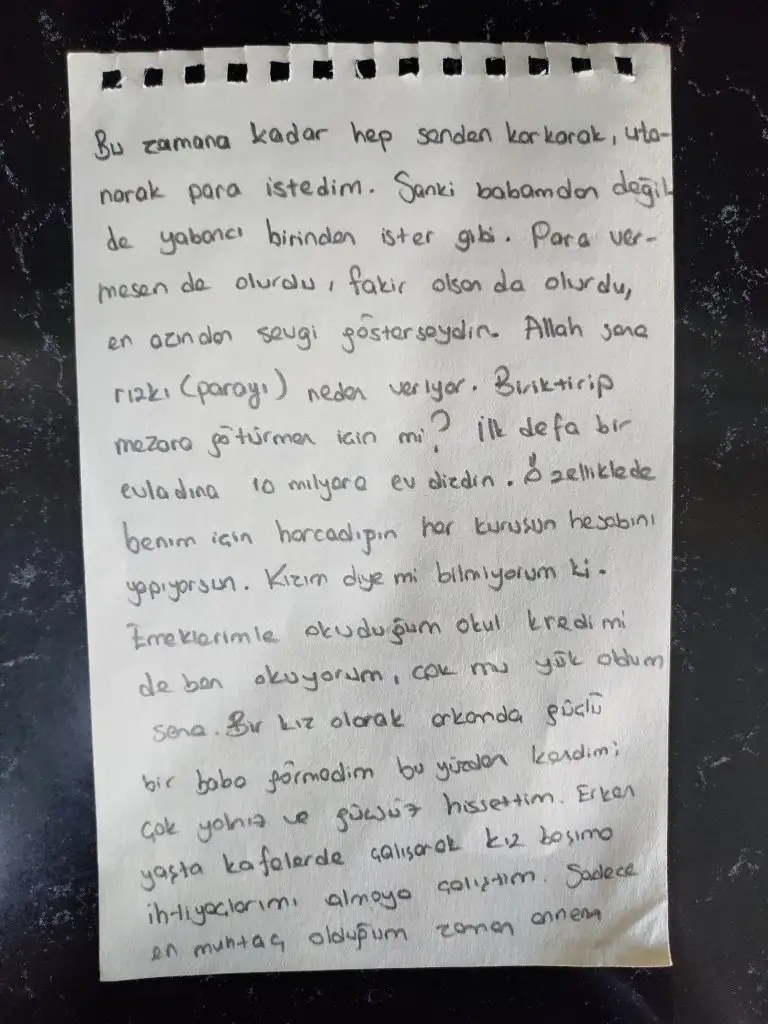 Bu zamana kadar hep senden korkarak, uta-
narak para istedim. Sanki babamdan değil
de yabancı birinden ister gibi. Para ver-
mesen de olurdu, fakir olsan da olurdu,
en azından sevgi gösterseydin. Allah sana
rızkı (parayı) neden veriyor. Biriktirip
mezara götürmen için mi? İlk defa bir
evladına 10 milyara ev dizdin. Özelliklede
benim için harcadığın her kurusun hesabını
yapıyorsun. Kızım diye mi bilmiyorum ki.
Emeklerimle okuduğum okul kredimi
de ben okuyorum, çok mu yük oldum
sana. Bir kız olarak arkanda güçlü
bir baba görmedim bu yüzden kendimi
çok yalnız ve güçsüz hissettim. Erken
yaşta kafelerde çalışarak kız başıma
ihtiyaçlarımı almaya çalıştım. Sadece
en muhtaç olduğum zaman annem